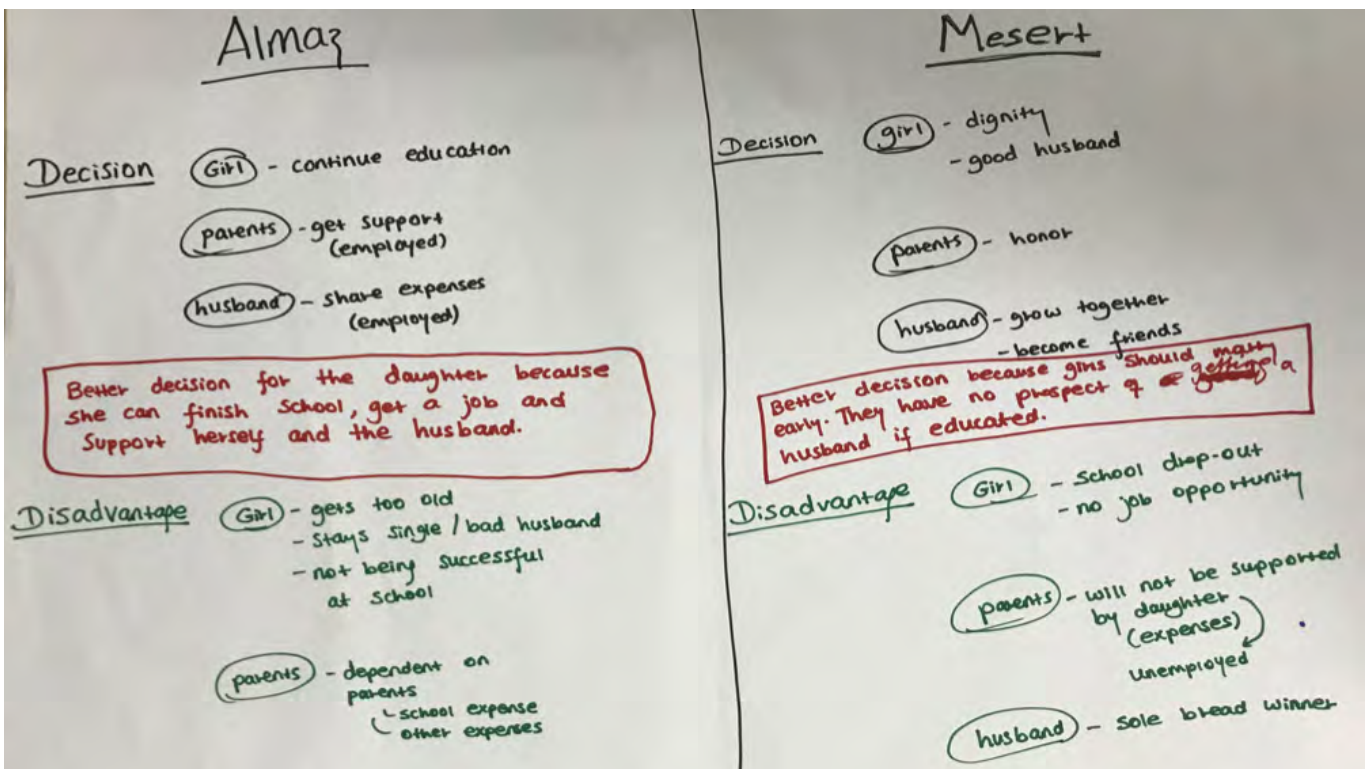 Almaz
Decision
Girl - continue education
parents - get support
(employed)
husband - share expenses
(employed)
Better decision for the daughter because
she can finish school, get a job and
support herself and the husband.
Disadvantage
Girl - gets too old
- stays single / bad husband
- not being successful
at school
parents - dependent on
parents
school expense
other expenses
Mesert
Decision
girl - dignity
- good husband
parents - honor
husband - grow together
- become friends
Better decision because girls should marry
early. They have no prospect of getting a
husband if educated.
Disadvantage
Girl - school drop-out
- no job opportunity
parents - will not be supported
by daughter
(expenses)
unemployed
husband - sole bread winner